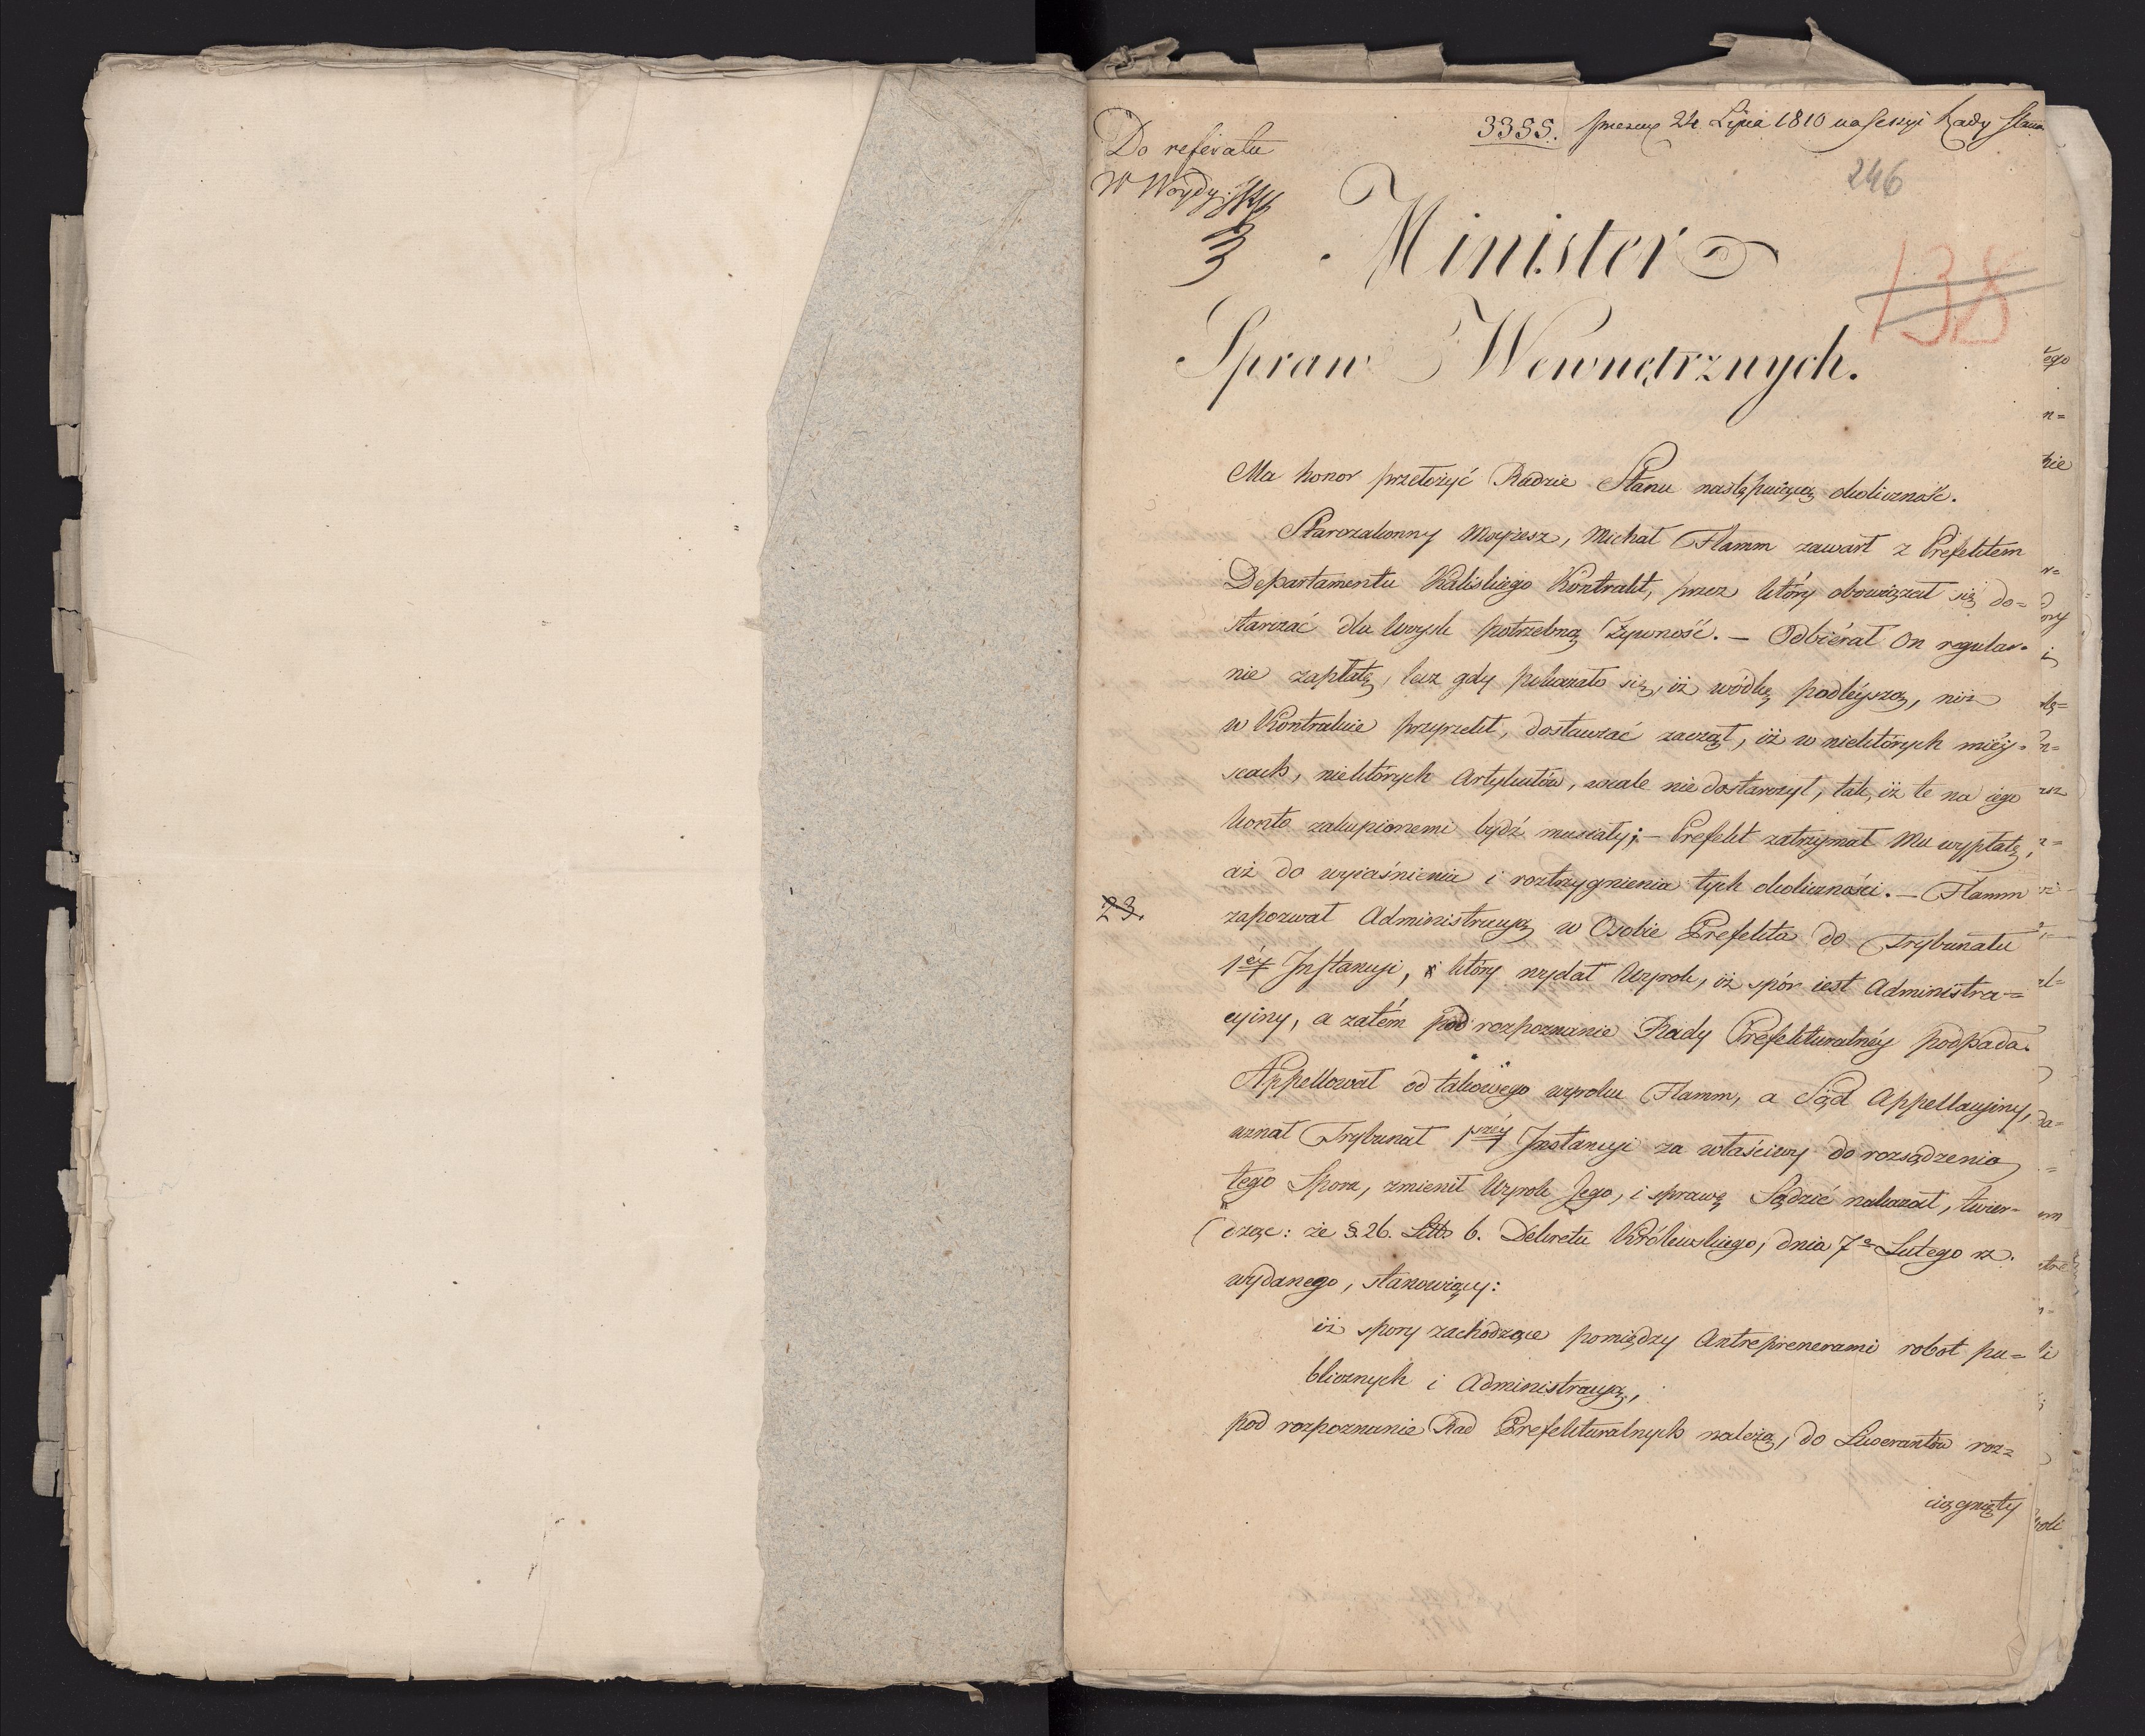 3355. 24 Lipca 1810 na Sessyi Rady Stanu
Do referatu
W Woydy
246
Minister
138
Spraw Wewnętrznych.
Ma honor przełożyć Radzie Stanu następuiącą okoliczność.
Starozakonny Moyżesz, Michał Flamm zawarł z Prefektem
Departamentu Kaliskiego Kontrakt, przez który obowiązał się do=
starczać dla woysk potrzebną Żywność. — Odbiérał On regular=
nie zapłatę, lecz gdy pokazało się, iż wódkę podléyszą, niż
w Kontrakcie przyrzekł, dostawiać zaczął, iż w niektórych miéy=
scach, niektórych Artykułów, wcale nie dostarczył, tak, iż te na iego
konto zakupionemi bydź musiały; — Prefekt zatrzymał Mu wypłatę,
aż do wyiaśnienia i roztrzygnienia tych okoliczności. — Flamm
23.
zapozwał Administracyą w Osobie Prefekta do Trybunału
1éy Instancyi, który wydał Wyrok, iż spór iest Administra=
cyiny, a zatém pod rozpoznanie Rady Prefekturalnéy podpada.
Appellował od takowego wyroku Flamm, a Sąd Appellacyiny,
uznał Trybunał 1széy Instancyi za właściwy do rozsądzenia
tego Sporu, zmienił Wyrok Jego, i sprawę Sądzić nakazał, twier=
dząc: że §. 26. Litt. b. Dekretu Królewskiego, dnia 7o Lutego rz.
wydanego, stanowiący:
iż spory zachodzące pomiędzy Antreprenerami robot pu=
blicznych i Administracyą,
pod rozpoznanie Rad Prefekturalnych należą, do Liwerantów roz=
ciągnięty